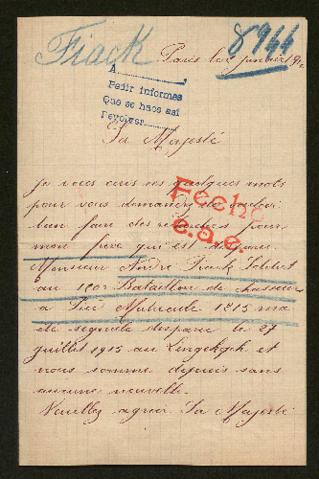 Fiack
Paris le 2 janvier 91
8944
A
Pedir informes
Que se hace asi
Devolver
Sa Majesté
Je vous écris ces quelques mots
pour vous demander de vouloir
bien faire des recherches pour
mon frère qui est disparu
Fecho
Monsieur André Fiack Soldat
c.a.e.
au Bataillon de chasseur
à Pied Matricule 1815 ma
été signalé disparu le 27
juillet 1915 au Lingekoph et
nous somme depuis sans
aucune nouvelle.
Veuillez agréer Sa Majesté